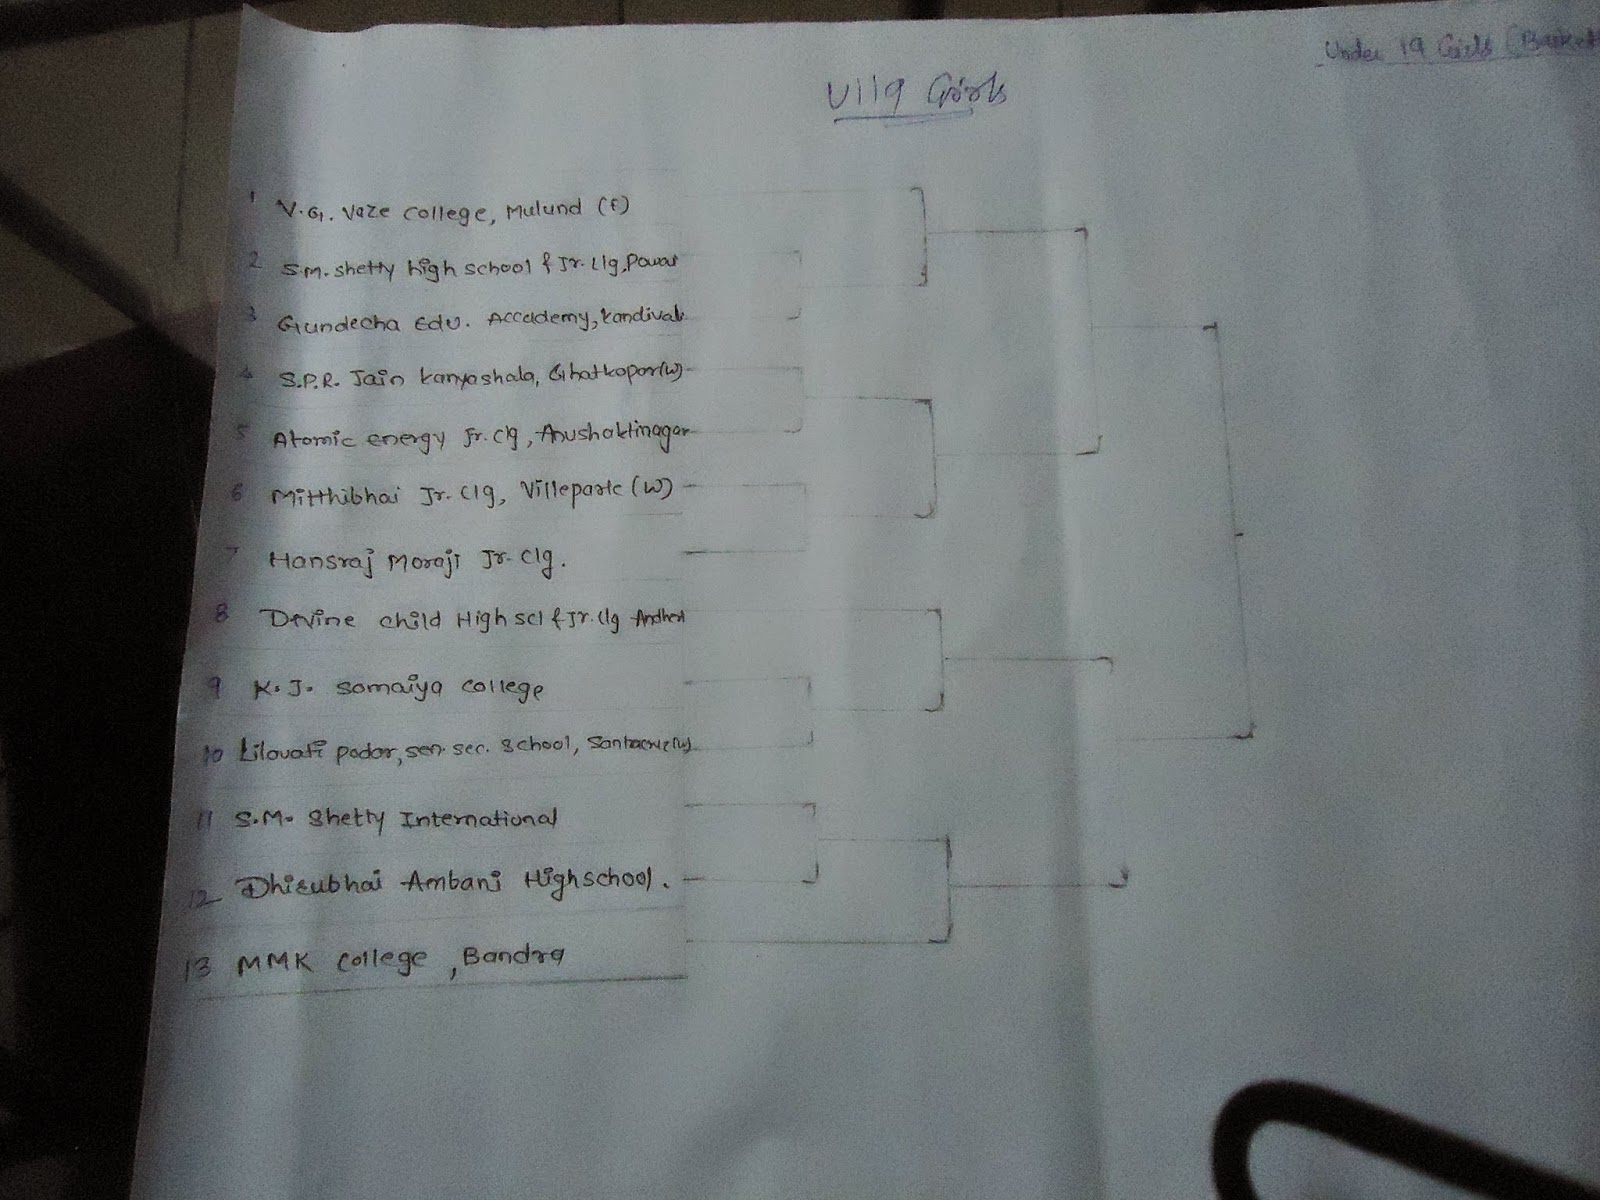 Under 19 Girls (Basket
U/19 Girls
1 V.G. Vaze College, Mulund (E)
2 S.M. Shetty high school & Jr. Clg, Powai
3 Gundecha Edu. Accademy, Kandivali
4 S.P.R. Jain Kanyashala, Ghatkopar(W)
5 Atomic energy Jr. Clg, Anushaktinagar
6 Mitthibhai Jr. Clg, Villeparle (W)
7 Hansraj Moraji Jr. Clg.
8 Devine child High scl & Jr. Clg Andheri
9 K.J. Somaiya College
10 Lilavati podar, sen. sec. School, Santacruz(W)
11 S.M. Shetty International
12 Dhirubhai Ambani Highschool.
13 MMK College, Bandra